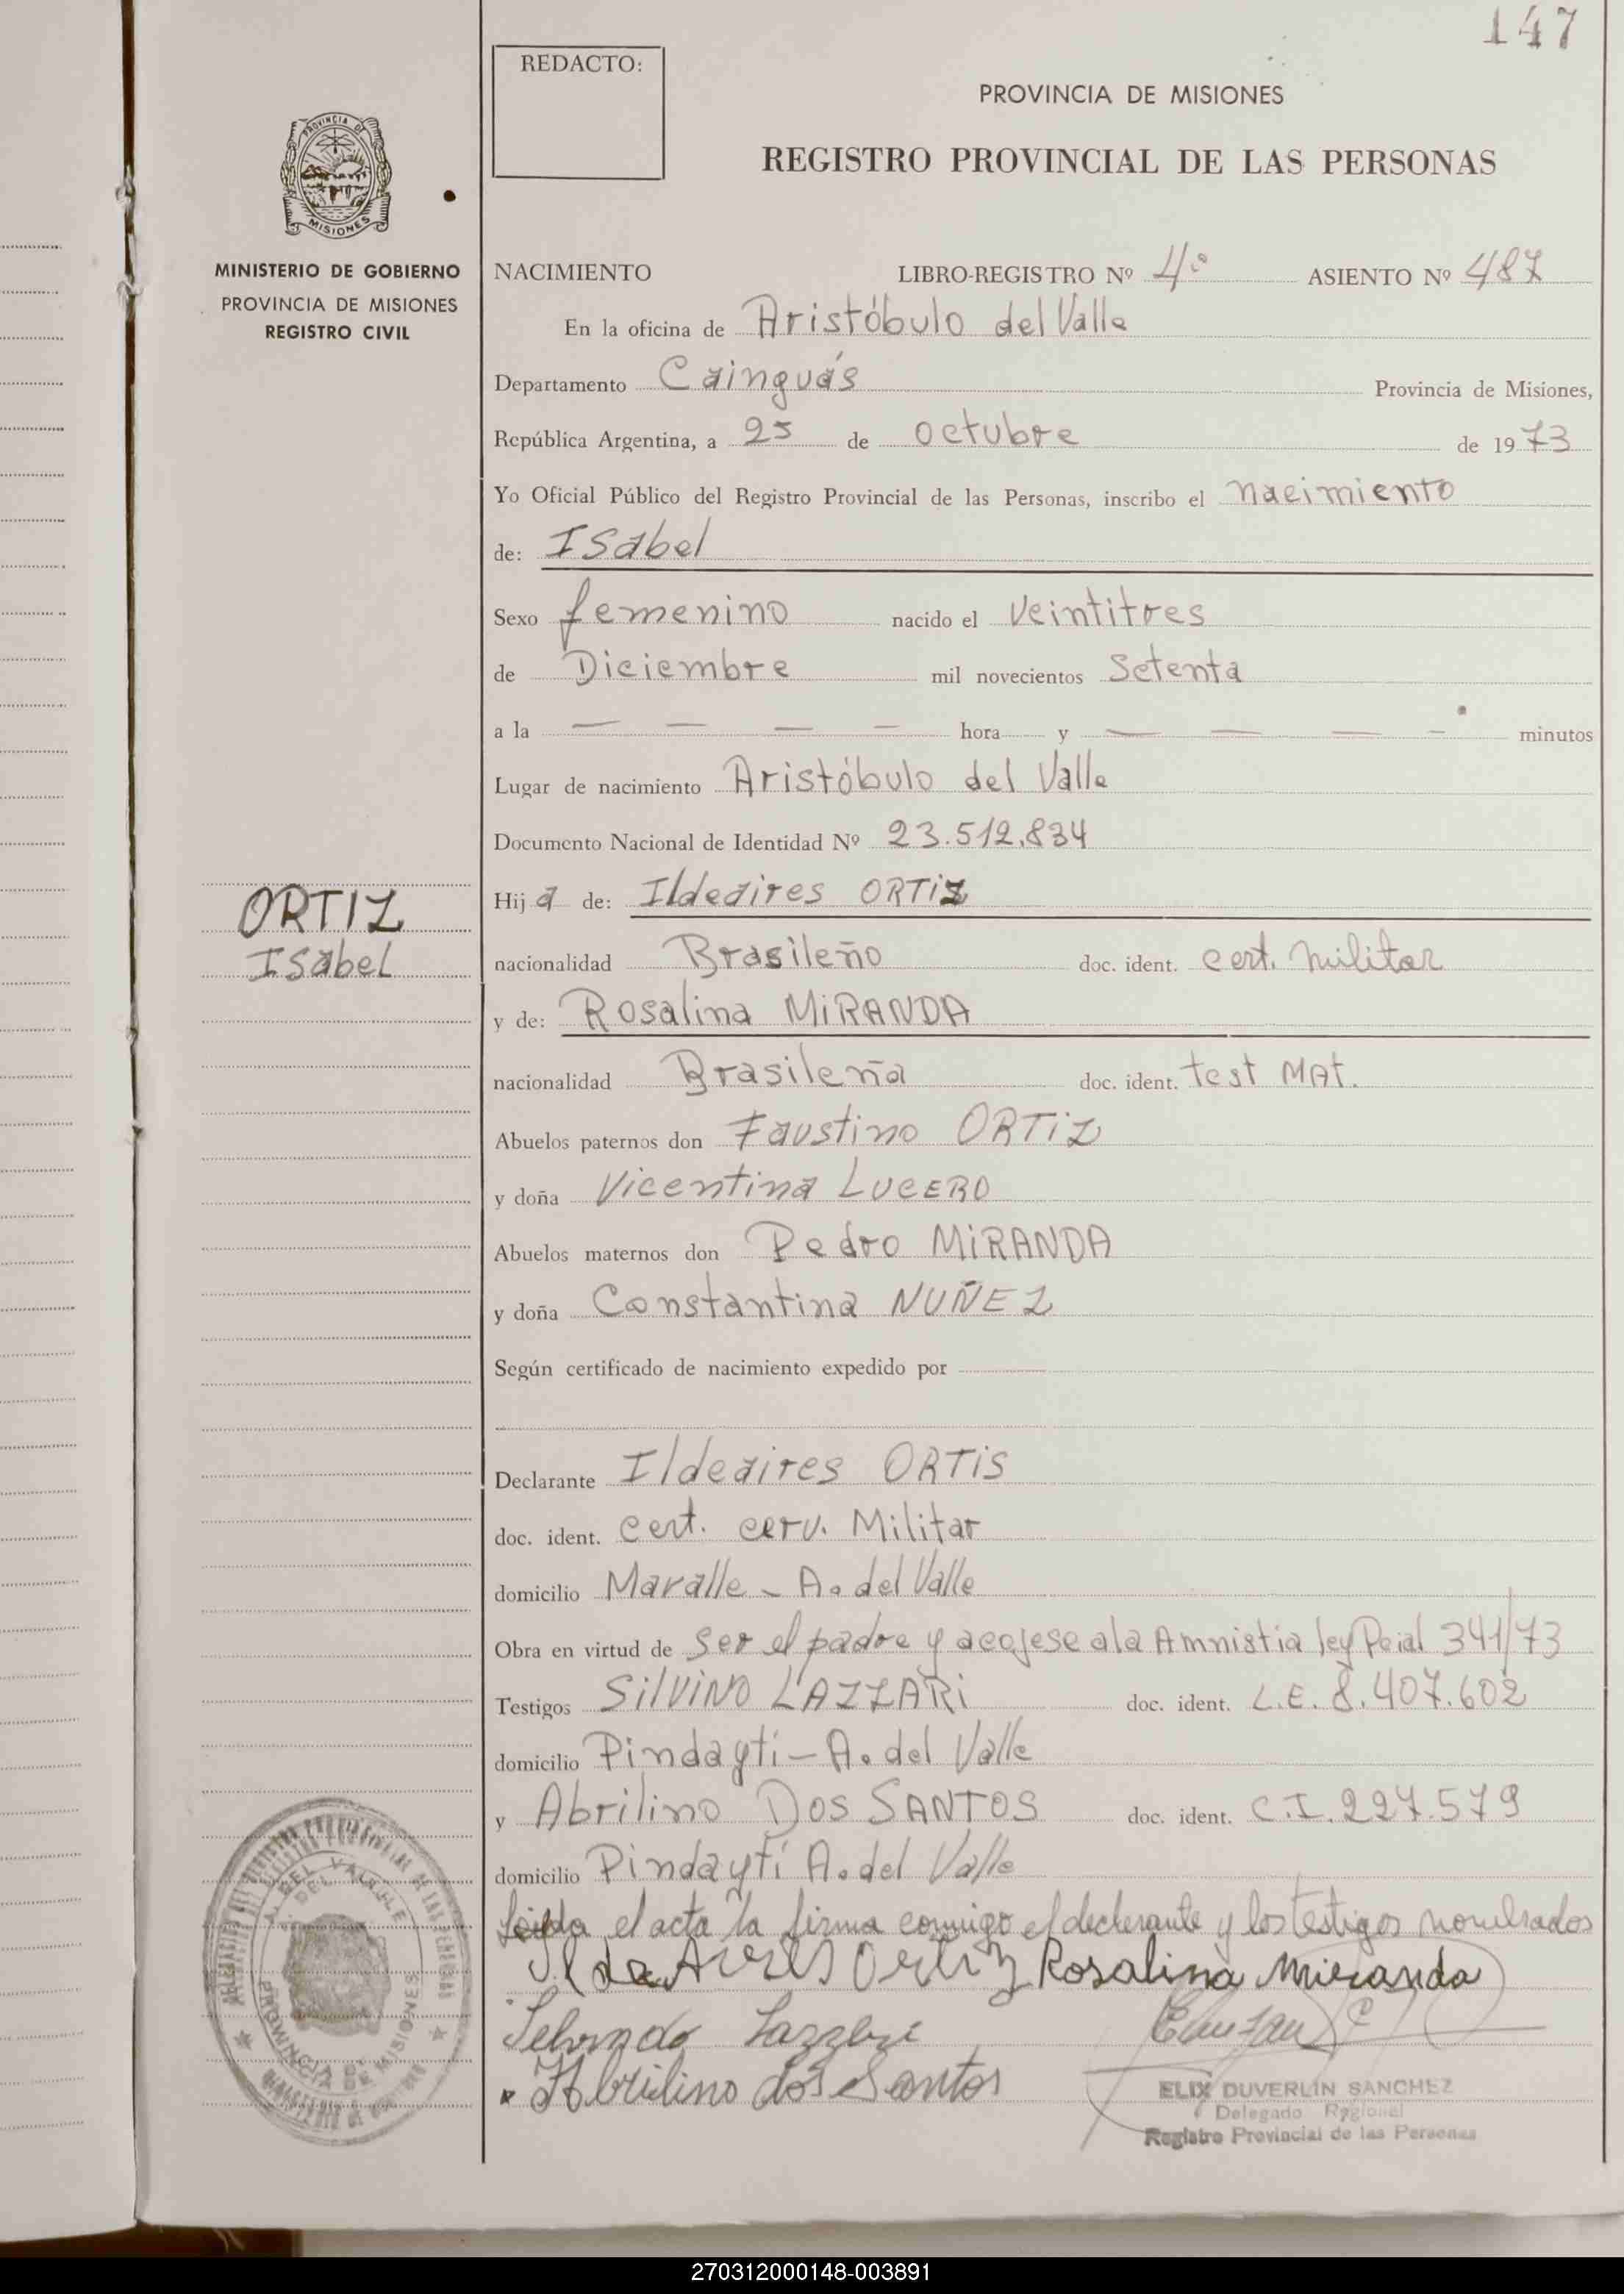 147
REDACTO:
PROVINCIA DE MISIONES
REGISTRO PROVINCIAL DE LAS PERSONAS
PROVINCIA DE
MISIONES
MINISTERIO DE GOBIERNO
PROVINCIA DE MISIONES
REGISTRO CIVIL
NACIMIENTO LIBRO-REGISTRO Nº 4º ASIENTO Nº 487
En la oficina de Aristóbulo del Valle
Departamento Cainguás Provincia de Misiones,
República Argentina, a 25 de octubre de 1973
Yo Oficial Público del Registro Provincial de las Personas, inscribo el nacimiento
de: Isabel
Sexo femenino nacido el veintitres
de Diciembre mil novecientos Setenta
a la — — — — hora y — — — — minutos
Lugar de nacimiento Aristóbulo del Valle
Documento Nacional de Identidad Nº 23.512.834
ORTIZ
Isabel
Hija de: Ildeaires ORTIZ
nacionalidad Brasileño doc. ident. cert. militar
y de: Rosalina MiRANDA
nacionalidad Brasileña doc. ident. test MAT.
Abuelos paternos don Faustino ORTiZ
y doña Vicentina LUCERO
Abuelos maternos don Pedro MiRANDA
y doña Constantina NUÑEZ
Según certificado de nacimiento expedido por
Declarante Ildeaires ORTiS
doc. ident. cert. cerv. Militar
domicilio Maralle - A. del Valle
Obra en virtud de ser el padre y acojese a la Amnistia ley Pcial 341/73
Testigos SilViNO LAZZARi doc. ident. L.E. 8.407.602
domicilio Pindaytí - A. del Valle
y Abrilino DOS SANTOS doc. ident. C.I. 227.579
domicilio Pindaytí A. del Valle
Leida el acta la firma conmigo el declarante y los testigos nombrados
Ilde Aires Ortiz Rosalina Miranda
Lazzari
Abrilino dos Santos
ELIX DUVERLIN SANCHEZ
Delegado Regional
Registro Provincial de las Personas
PROVINCIA DE MISIONES
270312000148-003891